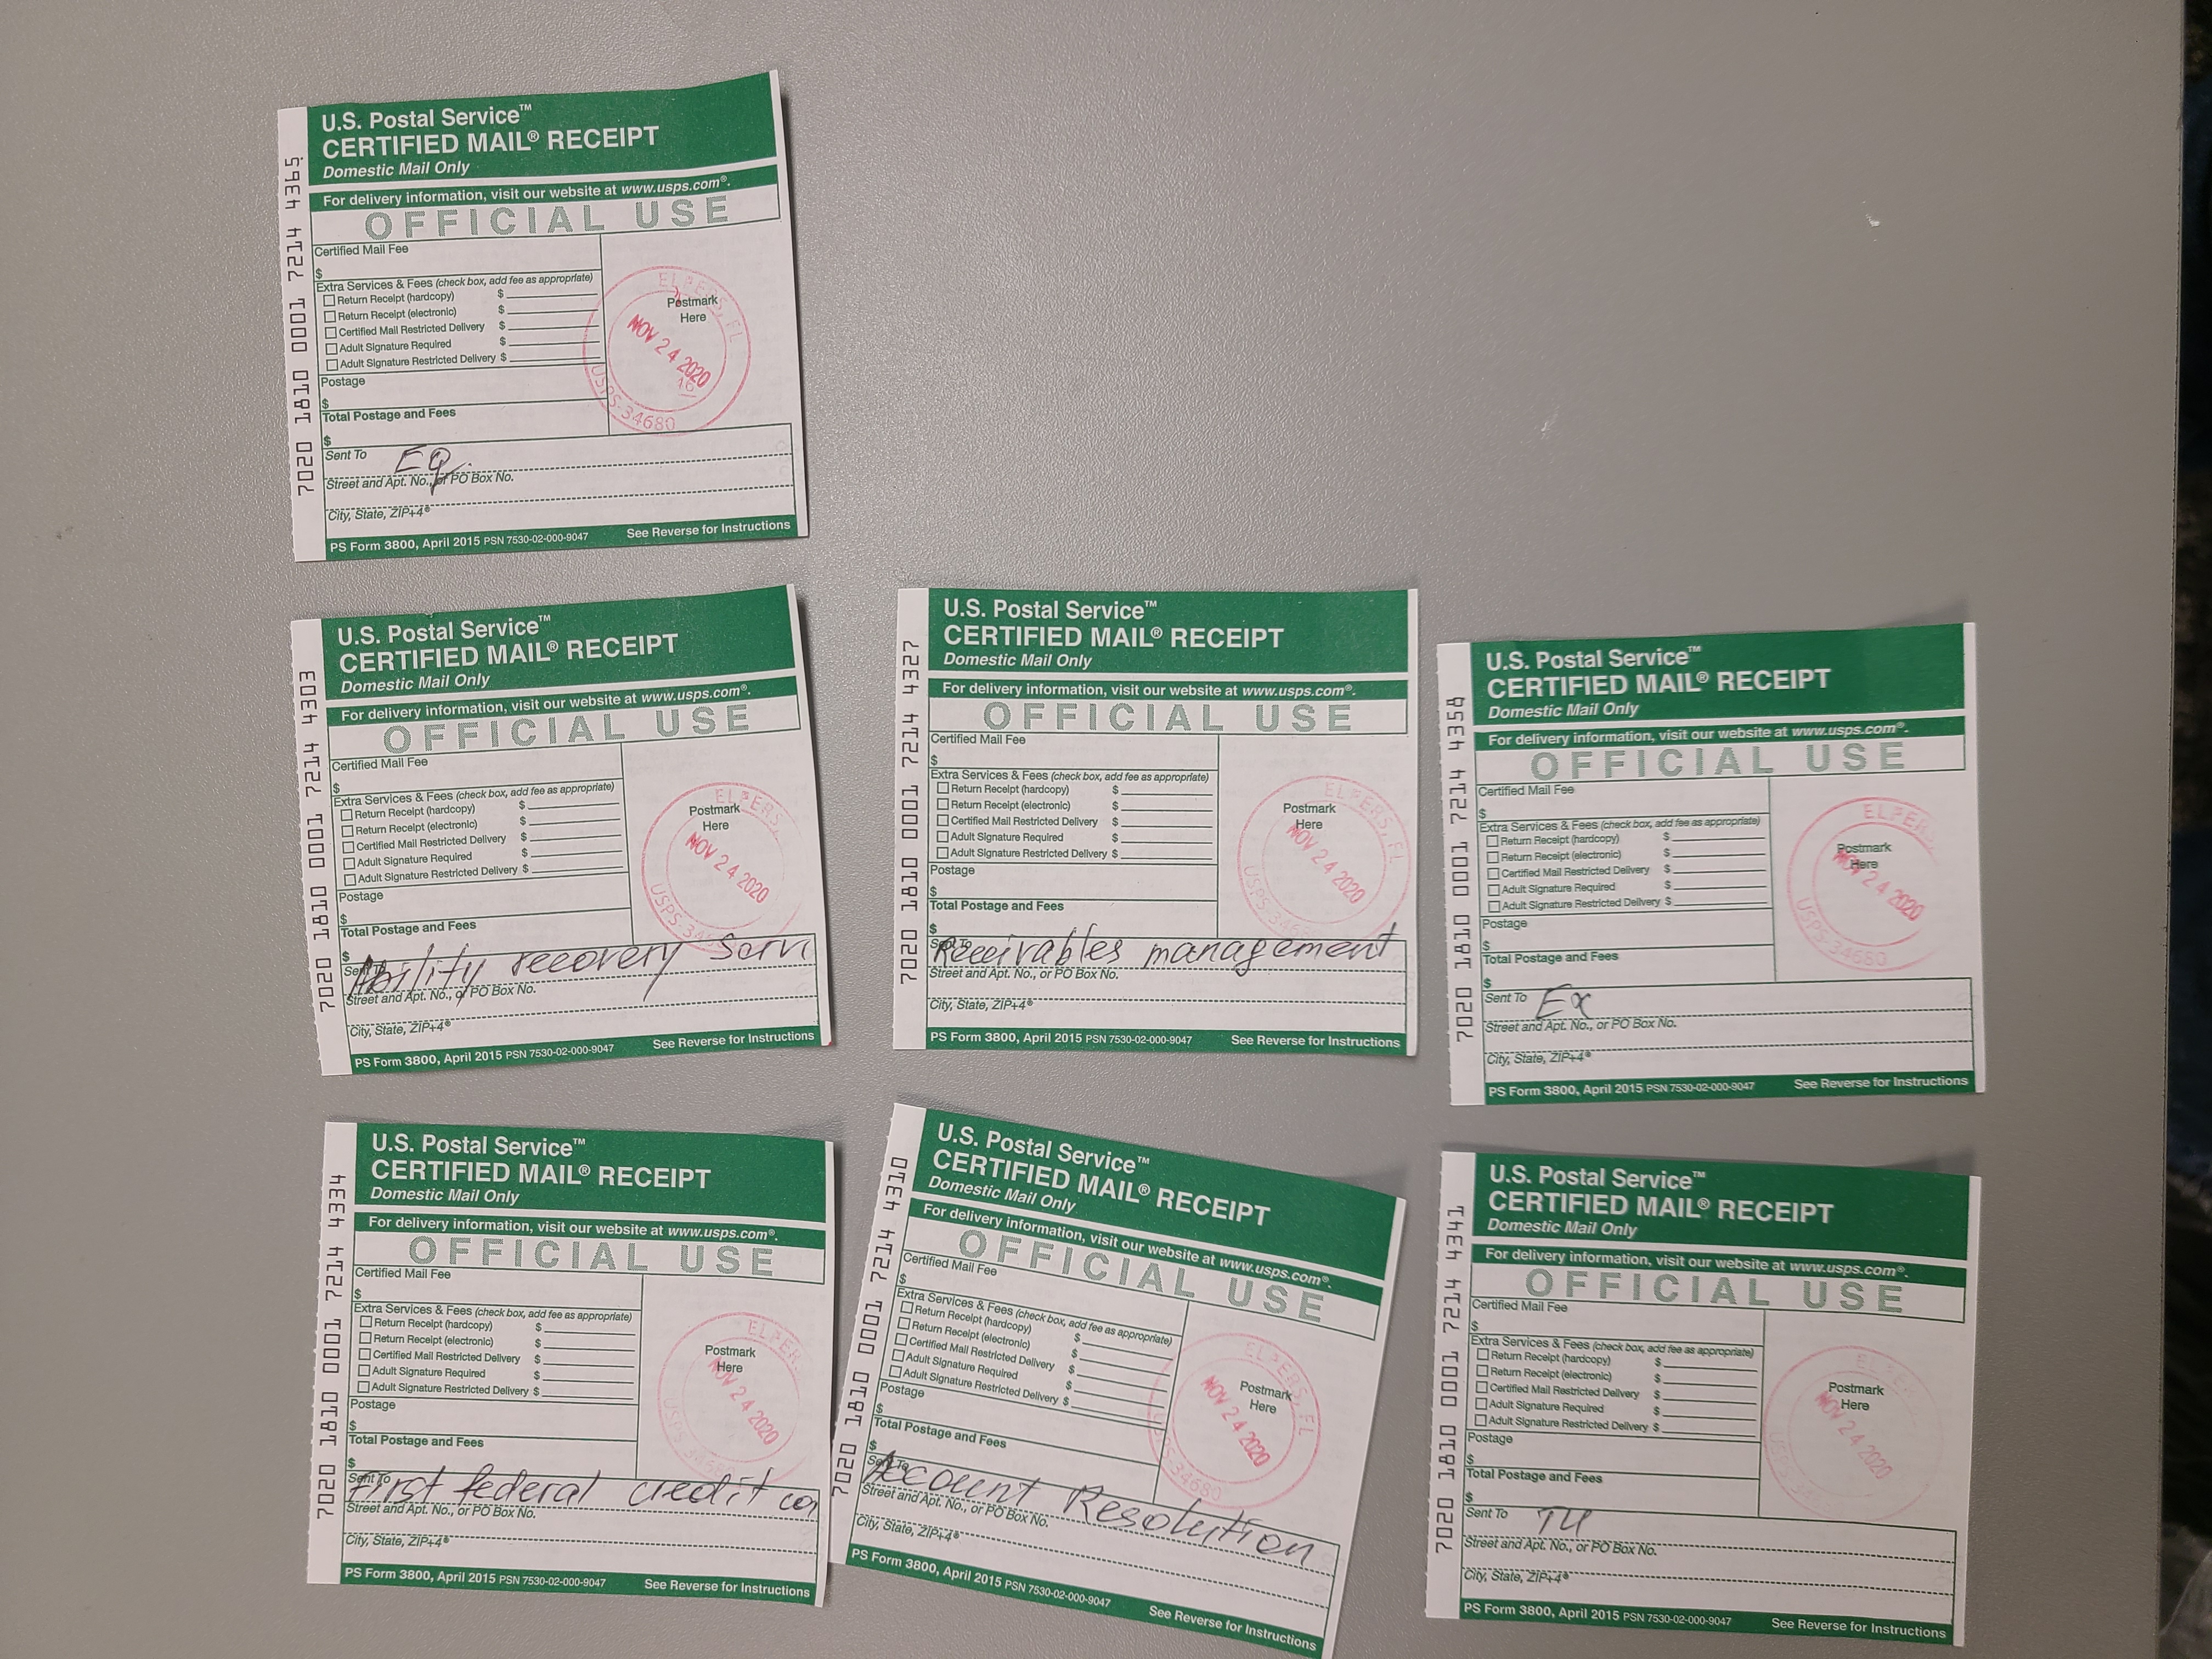 7020 1810 0001 7214 4334
U.S. Postal Service™
CERTIFIED MAIL® RECEIPT
Domestic Mail Only
For delivery information, visit our website at www.usps.com®.
OFFICIAL USE
Certified Mail Fee
$
Extra Services & Fees (check box, add fee as appropriate)
Return Receipt (hardcopy) $
Return Receipt (electronic) $
Certified Mail Restricted Delivery $
Adult Signature Required $
Adult Signature Restricted Delivery $
Postage
$
Total Postage and Fees
$
Postmark
Here
NOV 24 2020
Sent To
First federal credit con
Street and Apt. No., or PO Box No.
City, State, ZIP+4®
PS Form 3800, April 2015 PSN 7530-02-000-9047 See Reverse for Instructions
7020 1810 0001 7214 4303
U.S. Postal Service™
CERTIFIED MAIL® RECEIPT
Domestic Mail Only
For delivery information, visit our website at www.usps.com®.
OFFICIAL USE
Certified Mail Fee
$
Extra Services & Fees (check box, add fee as appropriate)
Return Receipt (hardcopy) $
Return Receipt (electronic) $
Certified Mail Restricted Delivery $
Adult Signature Required $
Adult Signature Restricted Delivery $
Postage
$
Total Postage and Fees
$
Postmark
Here
NOV 24 2020
Sent To
Ability recovery Serv
Street and Apt. No., or PO Box No.
City, State, ZIP+4®
PS Form 3800, April 2015 PSN 7530-02-000-9047 See Reverse for Instructions
7020 1810 0001 7214 4365
U.S. Postal Service™
CERTIFIED MAIL® RECEIPT
Domestic Mail Only
For delivery information, visit our website at www.usps.com®.
OFFICIAL USE
Certified Mail Fee
$
Extra Services & Fees (check box, add fee as appropriate)
Return Receipt (hardcopy) $
Return Receipt (electronic) $
Certified Mail Restricted Delivery $
Adult Signature Required $
Adult Signature Restricted Delivery $
Postage
$
Total Postage and Fees
$
Postmark
Here
NOV 24 2020
USPS-34680
Sent To
EQ
Street and Apt. No., or PO Box No.
City, State, ZIP+4®
PS Form 3800, April 2015 PSN 7530-02-000-9047 See Reverse for Instructions
7020 1810 0001 7214 4310
U.S. Postal Service™
CERTIFIED MAIL® RECEIPT
Domestic Mail Only
For delivery information, visit our website at www.usps.com®.
OFFICIAL USE
Certified Mail Fee
$
Extra Services & Fees (check box, add fee as appropriate)
Return Receipt (hardcopy) $
Return Receipt (electronic) $
Certified Mail Restricted Delivery $
Adult Signature Required $
Adult Signature Restricted Delivery $
Postage
$
Total Postage and Fees
$
Postmark
Here
ELFERS, FL
NOV 24 2020
Sent To
Resolention
Street and Apt. No., or PO Box No.
City, State, ZIP+4®
PS Form 3800, April 2015 PSN 7530-02-000-9047 See Reverse for Instructions
7020 1810 0001 7214 4327
U.S. Postal Service™
CERTIFIED MAIL® RECEIPT
Domestic Mail Only
For delivery information, visit our website at www.usps.com®.
OFFICIAL USE
Certified Mail Fee
$
Extra Services & Fees (check box, add fee as appropriate)
Return Receipt (hardcopy) $
Return Receipt (electronic) $
Certified Mail Restricted Delivery $
Adult Signature Required $
Adult Signature Restricted Delivery $
Postage
$
Total Postage and Fees
$
Postmark
Here
ELFERS, FL
NOV 24 2020
Sent To
Receivables management
Street and Apt. No., or PO Box No.
City, State, ZIP+4®
PS Form 3800, April 2015 PSN 7530-02-000-9047 See Reverse for Instructions
7020 1810 0001 7214 4341
U.S. Postal Service™
CERTIFIED MAIL® RECEIPT
Domestic Mail Only
For delivery information, visit our website at www.usps.com®.
OFFICIAL USE
Certified Mail Fee
$
Extra Services & Fees (check box, add fee as appropriate)
Return Receipt (hardcopy) $
Return Receipt (electronic) $
Certified Mail Restricted Delivery $
Adult Signature Required $
Adult Signature Restricted Delivery $
Postage
$
Total Postage and Fees
$
Postmark
Here
NOV 24 2020
Sent To
Street and Apt. No., or PO Box No.
City, State, ZIP+4®
PS Form 3800, April 2015 PSN 7530-02-000-9047 See Reverse for Instructions
7020 1810 0001 7214 4358
U.S. Postal Service™
CERTIFIED MAIL® RECEIPT
Domestic Mail Only
For delivery information, visit our website at www.usps.com®.
OFFICIAL USE
Certified Mail Fee
$
Extra Services & Fees (check box, add fee as appropriate)
Return Receipt (hardcopy) $
Return Receipt (electronic) $
Certified Mail Restricted Delivery $
Adult Signature Required $
Adult Signature Restricted Delivery $
Postage
$
Total Postage and Fees
$
Postmark
Here
NOV 24 2020
USPS-34680
Sent To
Ex
Street and Apt. No., or PO Box No.
City, State, ZIP+4®
PS Form 3800, April 2015 PSN 7530-02-000-9047 See Reverse for Instructions